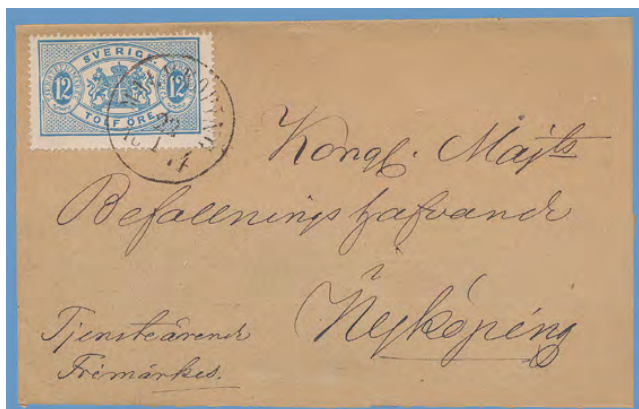 SVERIGE
12 12
TOLF ÖRE
22
Kongl. Majts
Befallningshafvande
Nyköping
Tjensteärende
Frimärkes.